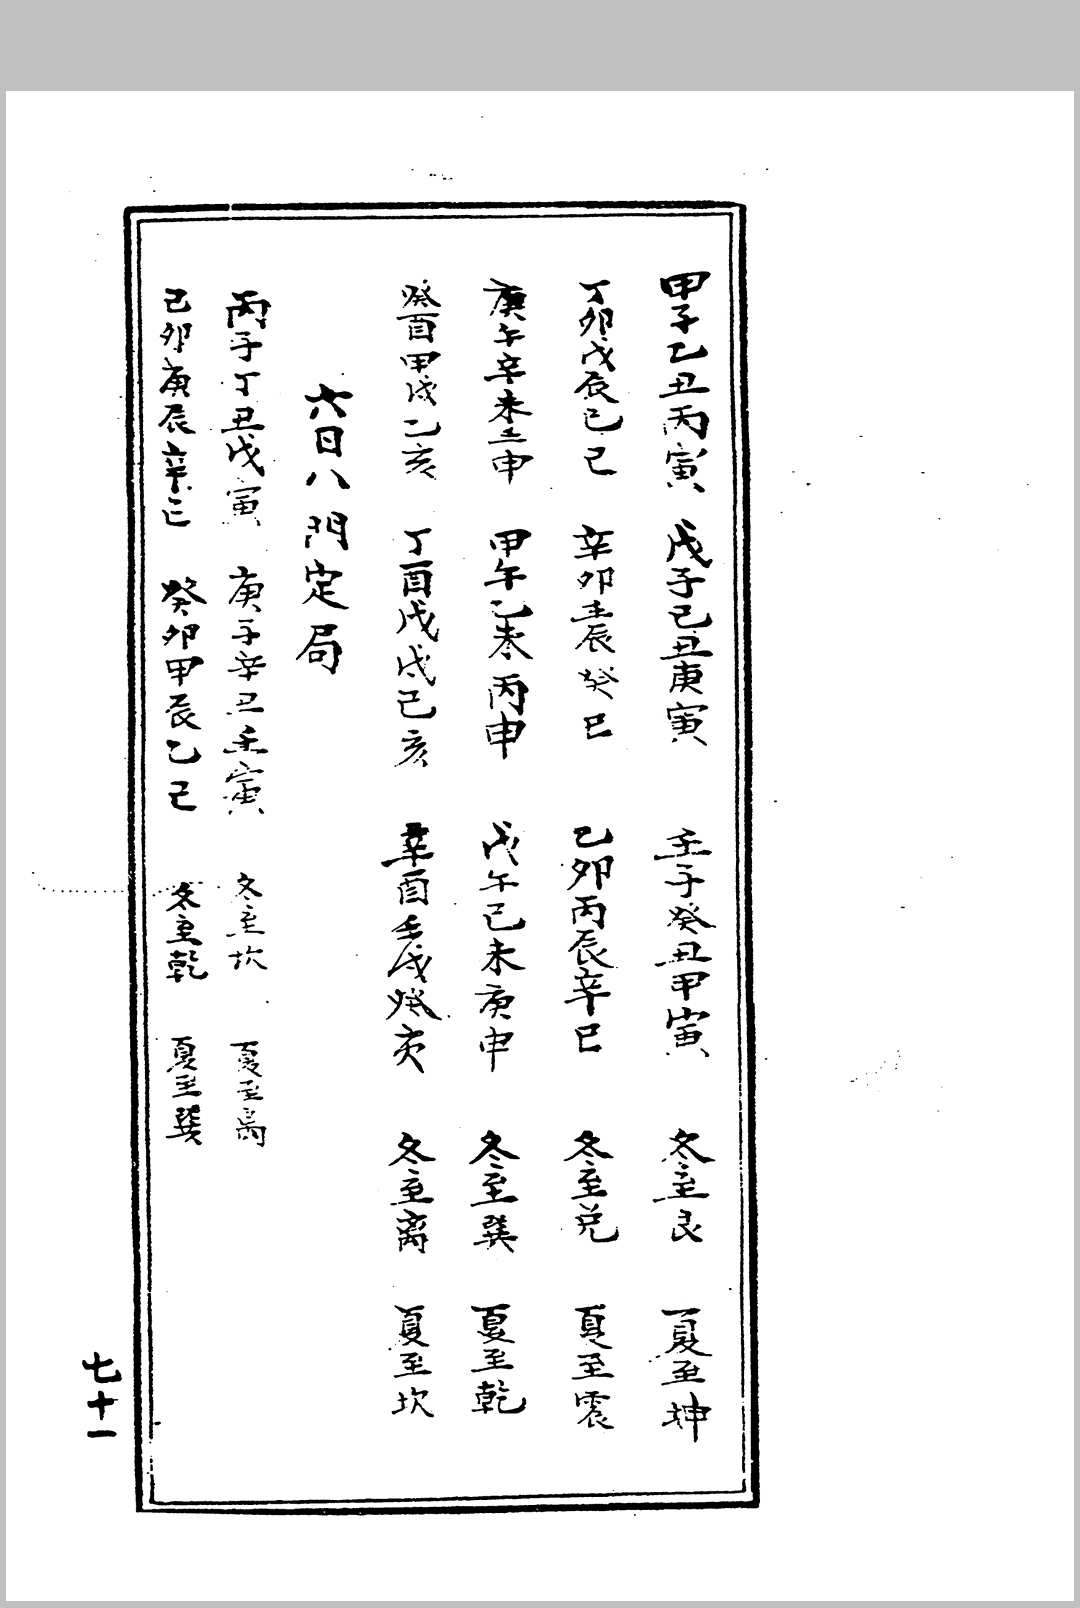 甲子乙丑丙寅 戊子己丑庚寅 壬子癸丑甲寅 冬至艮 夏至坤
丁卯戊辰己巳 辛卯壬辰癸巳 乙卯丙辰辛巳 冬至兑 夏至震
庚午辛未壬申 甲午乙未丙申 戊午己未庚申 冬至巽 夏至乾
癸酉甲戌乙亥 丁酉戊戌己亥 辛酉壬戌癸亥 冬至离 夏至坎
六日八門定局
丙子丁丑戊寅 庚子辛丑壬寅 冬至坎 夏至离
己卯庚辰辛巳 癸卯甲辰乙巳 冬至乾 夏至巽
七十一